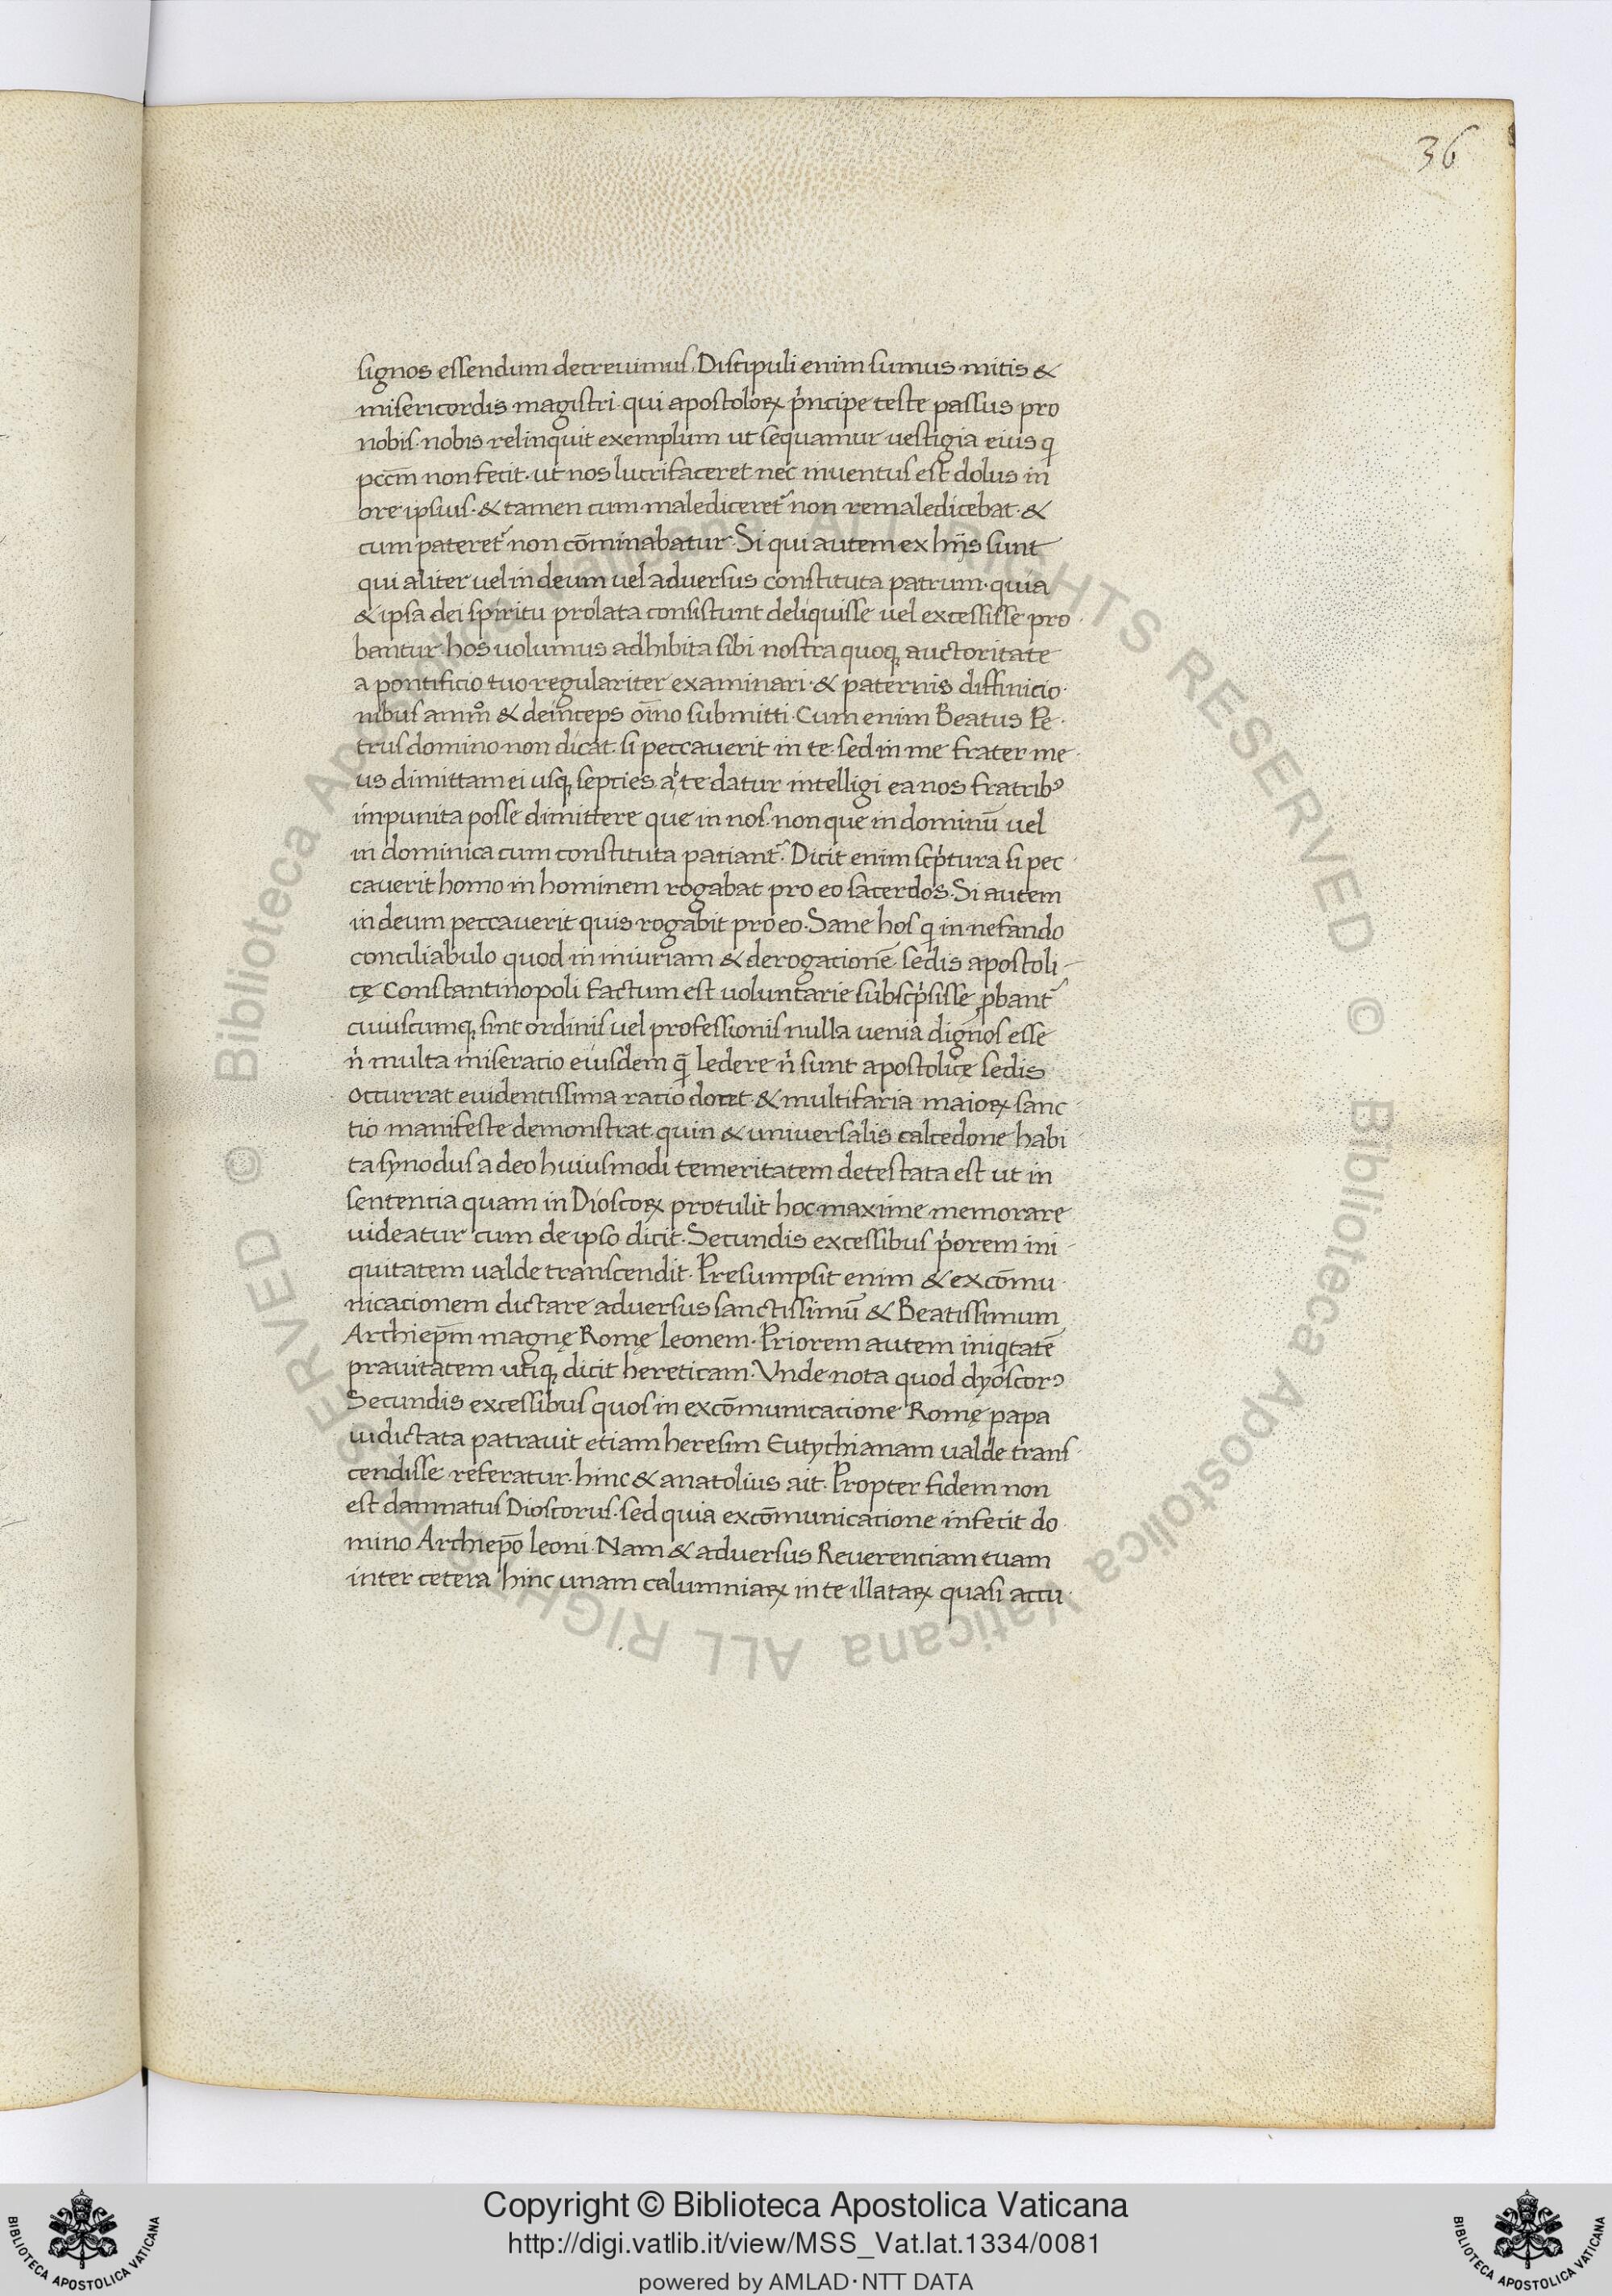 36
signos essendum decreuimus. Discipuli enim sumus mitis &
misericordis magistri qui apostoloꝝ p̍ncipe teste passus pro
nobis nobis relinquit exemplum ut sequamur uestigia eius q̍
pcc̄m non fecit. ut nos lucrifaceret nec inuentus est dolus in
ore ipsius. & tamen cum malediceret᷑ non remaledicebat. &
cum pateret᷑ non cōminabatur. Si qui autem ex hijs sunt
qui aliter uel in deum uel aduersus constituta patrum. quia
& ipsa dei spiritu prolata consistunt deliquisse uel excessisse pro
bantur. hos uolumus adhibita sibi nostra quoq; auctoritate
a pontificio tuo regulariter examinari. & paternis diffinicio
nibus ammͦ & deinceps oīno submitti. Cum enim Beatus Pe
trus domino non dicat. si peccauerit in te. sed in me frater me
us dimittam ei usq; septies. a te datur intelligi ea nos fratribꝰ
impunita posse dimittere que in nos. non que in dominū uel
in dominica cum constituta patiant᷑. Dicit enim scp̍tura si pec
cauerit homo in hominem rogabat pro eo sacerdos. Si autem
in deum peccauerit quis rogabit pro eo. Sane hos q̍ in nefando
conciliabulo quod in iniuriam & derogationē sedis apostoli
cę Constantinopoli factum est uoluntarie subscp̍sisse ꝓbant᷑
cuiuscumq; sint ordinis uel professionis nulla uenia dignos esse
n̍ multa miseracio eiusdem q̄ ledere n̍ sunt apostolicę sedis
occurrat euidentissima ratio docet. & multifaria maioꝝ sanc
tio manifeste demonstrat. quin & uniuersalis calcedone habi
ta synodus adeo huiusmodi temeritatem detestata est ut in
sententia quam in Dioscoꝝ protulit hoc maxime memorare
uideatur cum de ipso dicit. Secundis excessibus p̍orem ini
quitatem ualde transcendit. Presumpsit enim & excōmu
nicacionem dictare aduersus sanctissimū & Beatissimum
Archiep̄m magnę Romę leonem. Priorem autem iniq̍tatē
prauitatem utiq; dicit hereticam. Vnde nota quod dyoscorꝰ
Secundis excessibus quos in excōmunicacione Romę papa
indictata patrauit etiam heresim Eutychianam ualde trans
cendisse referatur. hinc & anatolius ait. Propter fidem non
est damnatus Dioscorus. sed quia excōmunicacione infecit do
mino Archiep̄o leoni. Nam & aduersus Reuerenciam tuam
inter cetera hinc unam calumniaꝝ in te illataꝝ quasi accu
Copyright © Biblioteca Apostolica Vaticana
http://digi.vatlib.it/view/MSS_Vat.lat.1334/0081
powered by AMLAD·NTT DATA
BIBLIOTECA APOSTOLICA VATICANA
BIBLIOTECA APOSTOLICA VATICANA
© Biblioteca Apostolica Vaticana ALL RIGHTS RESERVED © Biblioteca Apostolica Vaticana ALL RIGHTS RESERVED